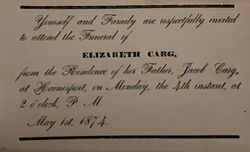 Yourself and Family are respectfully invited
to attend the Funeral of
ELIZABETH CARG,
from the Residence of her Father, Jacob Carg,
at Hainesport, on Monday, the 4th instant, at
2 o'clock, P. M.
May 1st, 1874.